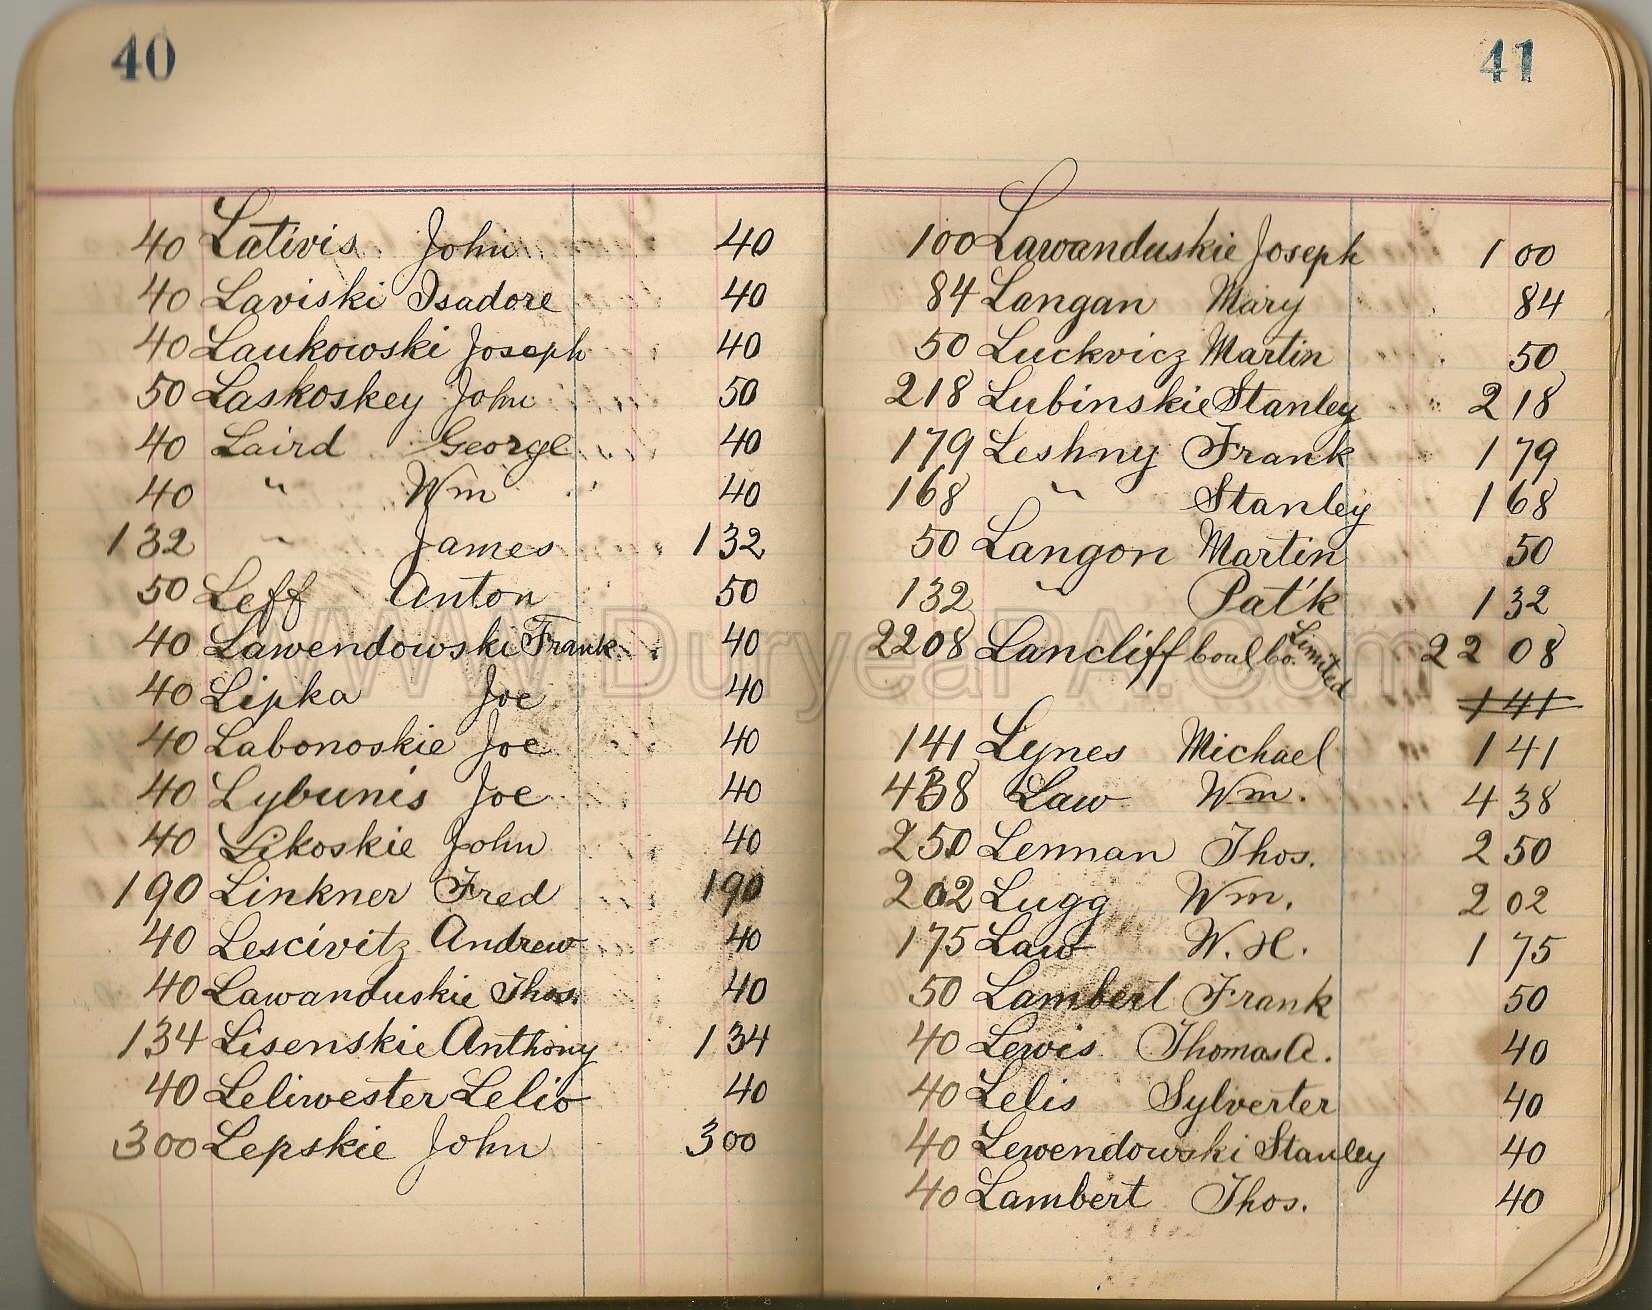 40
40 Lativis John 40
40 Laviski Isadore 40
40 Laukowski Joseph 40
50 Laskoskey John 50
40 Laird George 40
40 " Wm 40
132 " James 132
50 Leff Anton 50
40 Lawendowski Frank 40
40 Lipka Joe 40
40 Labonoskie Joe 40
40 Lybunis Joe 40
40 Likoskie John 40
190 Linkner Fred 190
40 Lescivitz Andrew 40
40 Lawanduskie Thos. 40
134 Lisenskie Anthony 134
40 Leliwester Lelio 40
300 Lepskie John 300
41
100 Lawanduskie Joseph 1 00
84 Langan Mary 84
50 Luckvicz Martin 50
218 Lubinskie Stanley 2 18
179 Leshny Frank 1 79
168 " Stanley 1 68
50 Langon Martin 50
132 " Pat'k 1 32
2208 Lancliff Coal Co. Limited 22 08
141
141 Lynes Michael 1 41
438 Law Wm. 4 38
250 Lennan Thos. 2 50
202 Lugg Wm. 2 02
175 Law W. H. 1 75
50 Lambert Frank 50
40 Lewis Thomas A. 40
40 Lelis Sylverter 40
40 Lewendowski Stanley 40
40 Lambert Thos. 40
www.DuryeaPA.com